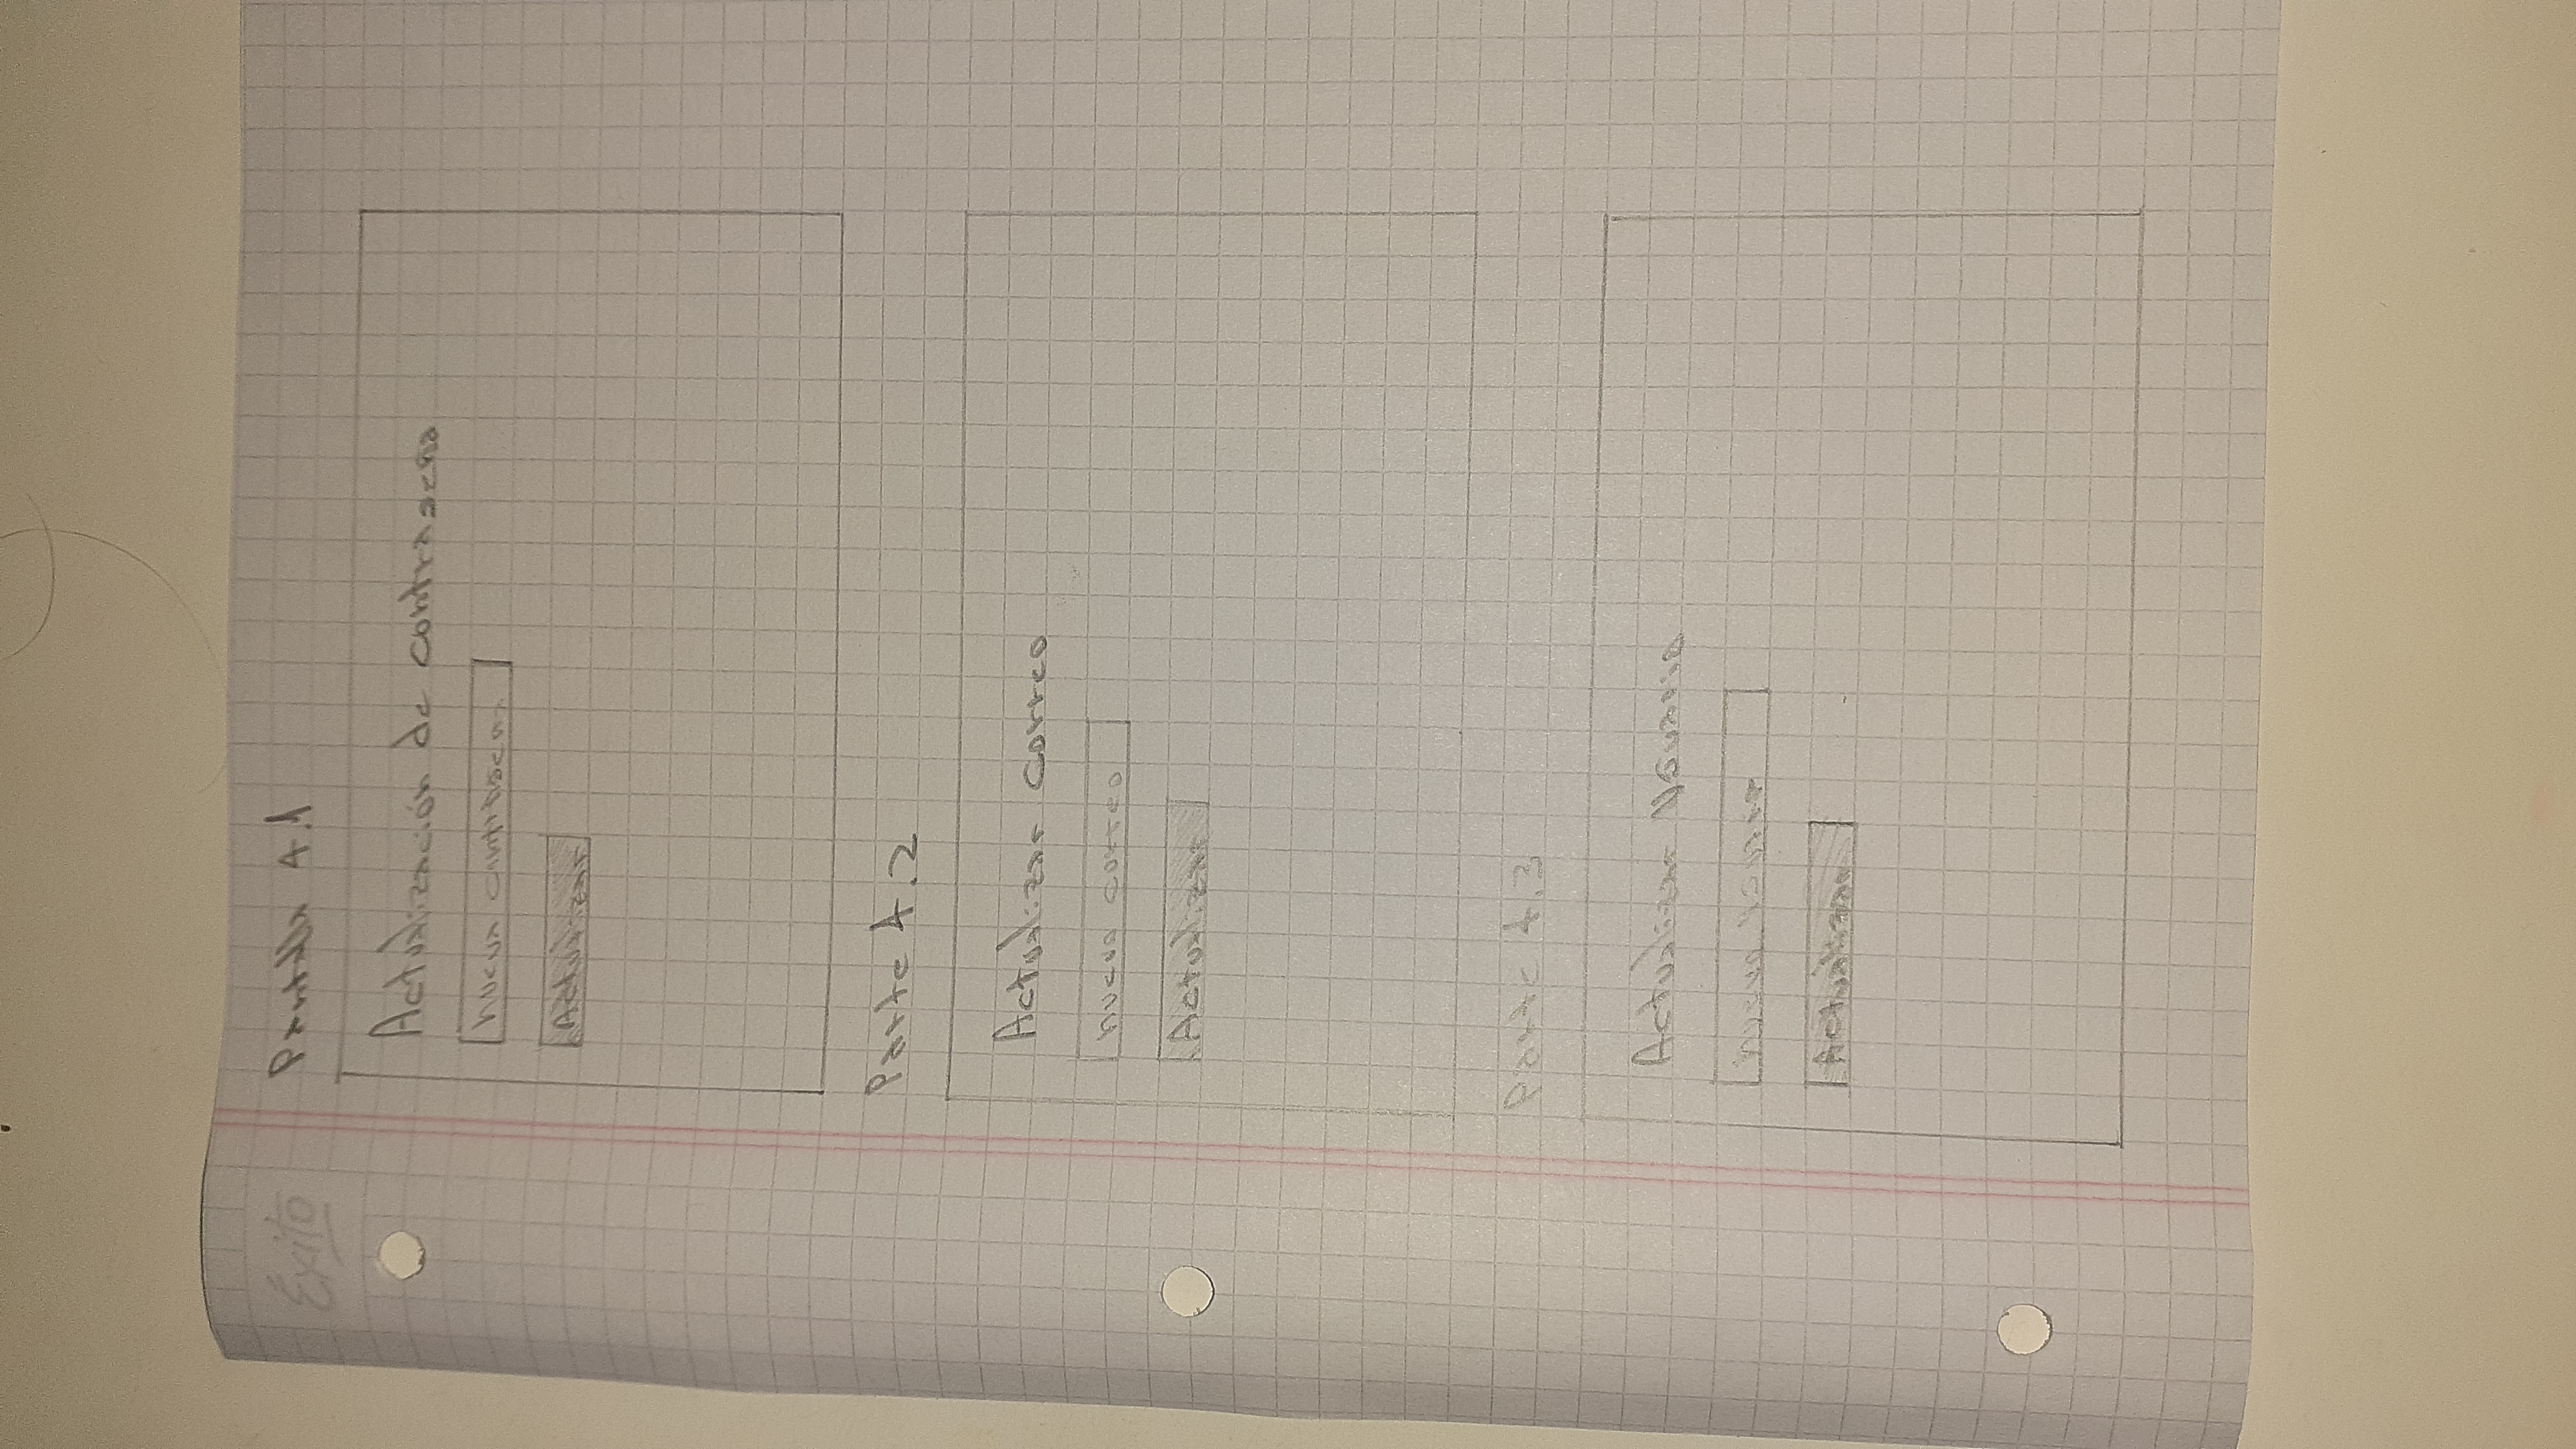 Éxito
Pantalla 4.1
Actualización de contraseña
nueva contraseña
Actualizar
Parte 4.2
Actualizar correo
nuevo correo
Actualizar
Parte 4.3
Actualizar Usuario
nuevo usuario
Actualizar